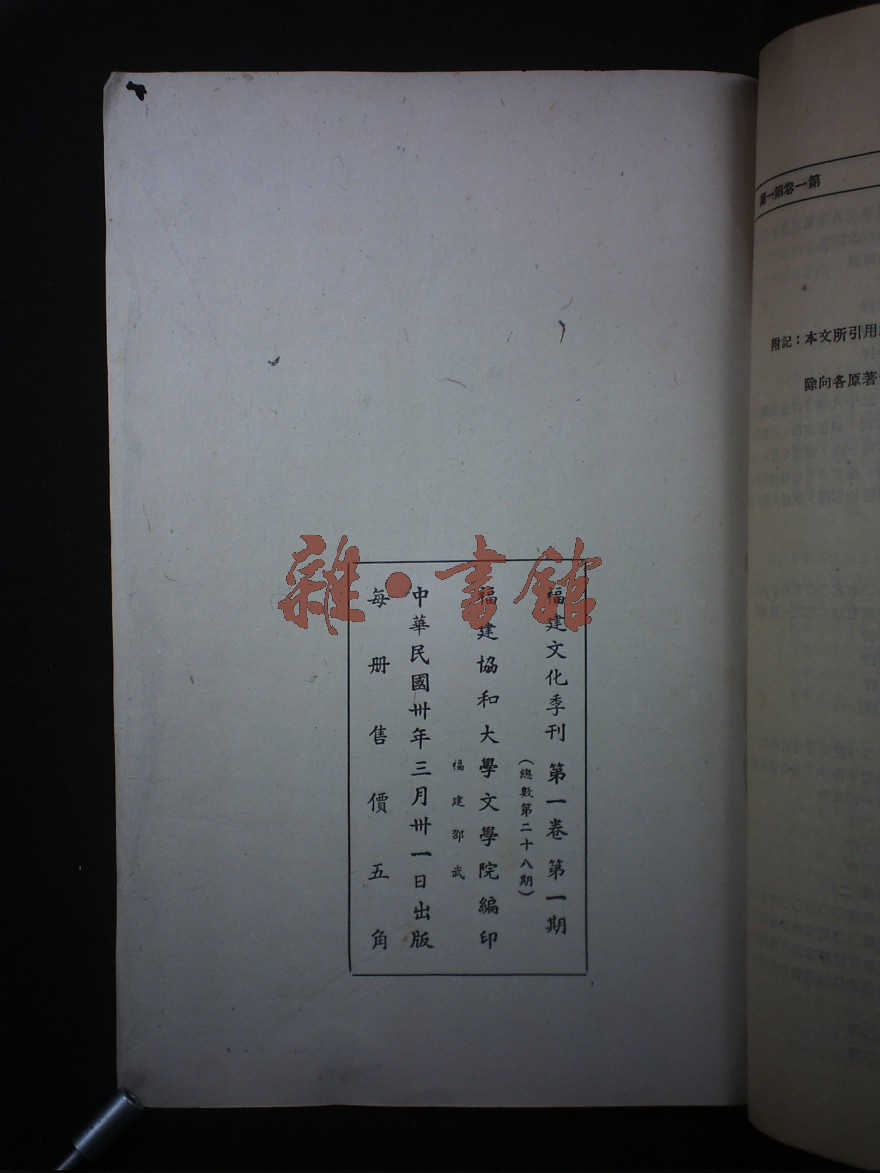 第一卷第一期
附記：本文所引用
除向各原著
福建文化季刊 第一卷 第一期
（總數第二十八期）
福建協和大學文學院編印
福建邵武
中華民國卅年三月卅一日出版
每册售價五角
雜·書館